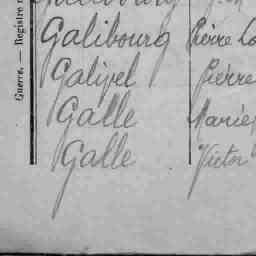 Galibourg Pierre Lo
Galipel Pierre
Galle Marie
Galle Victor
Guerre. — Registre